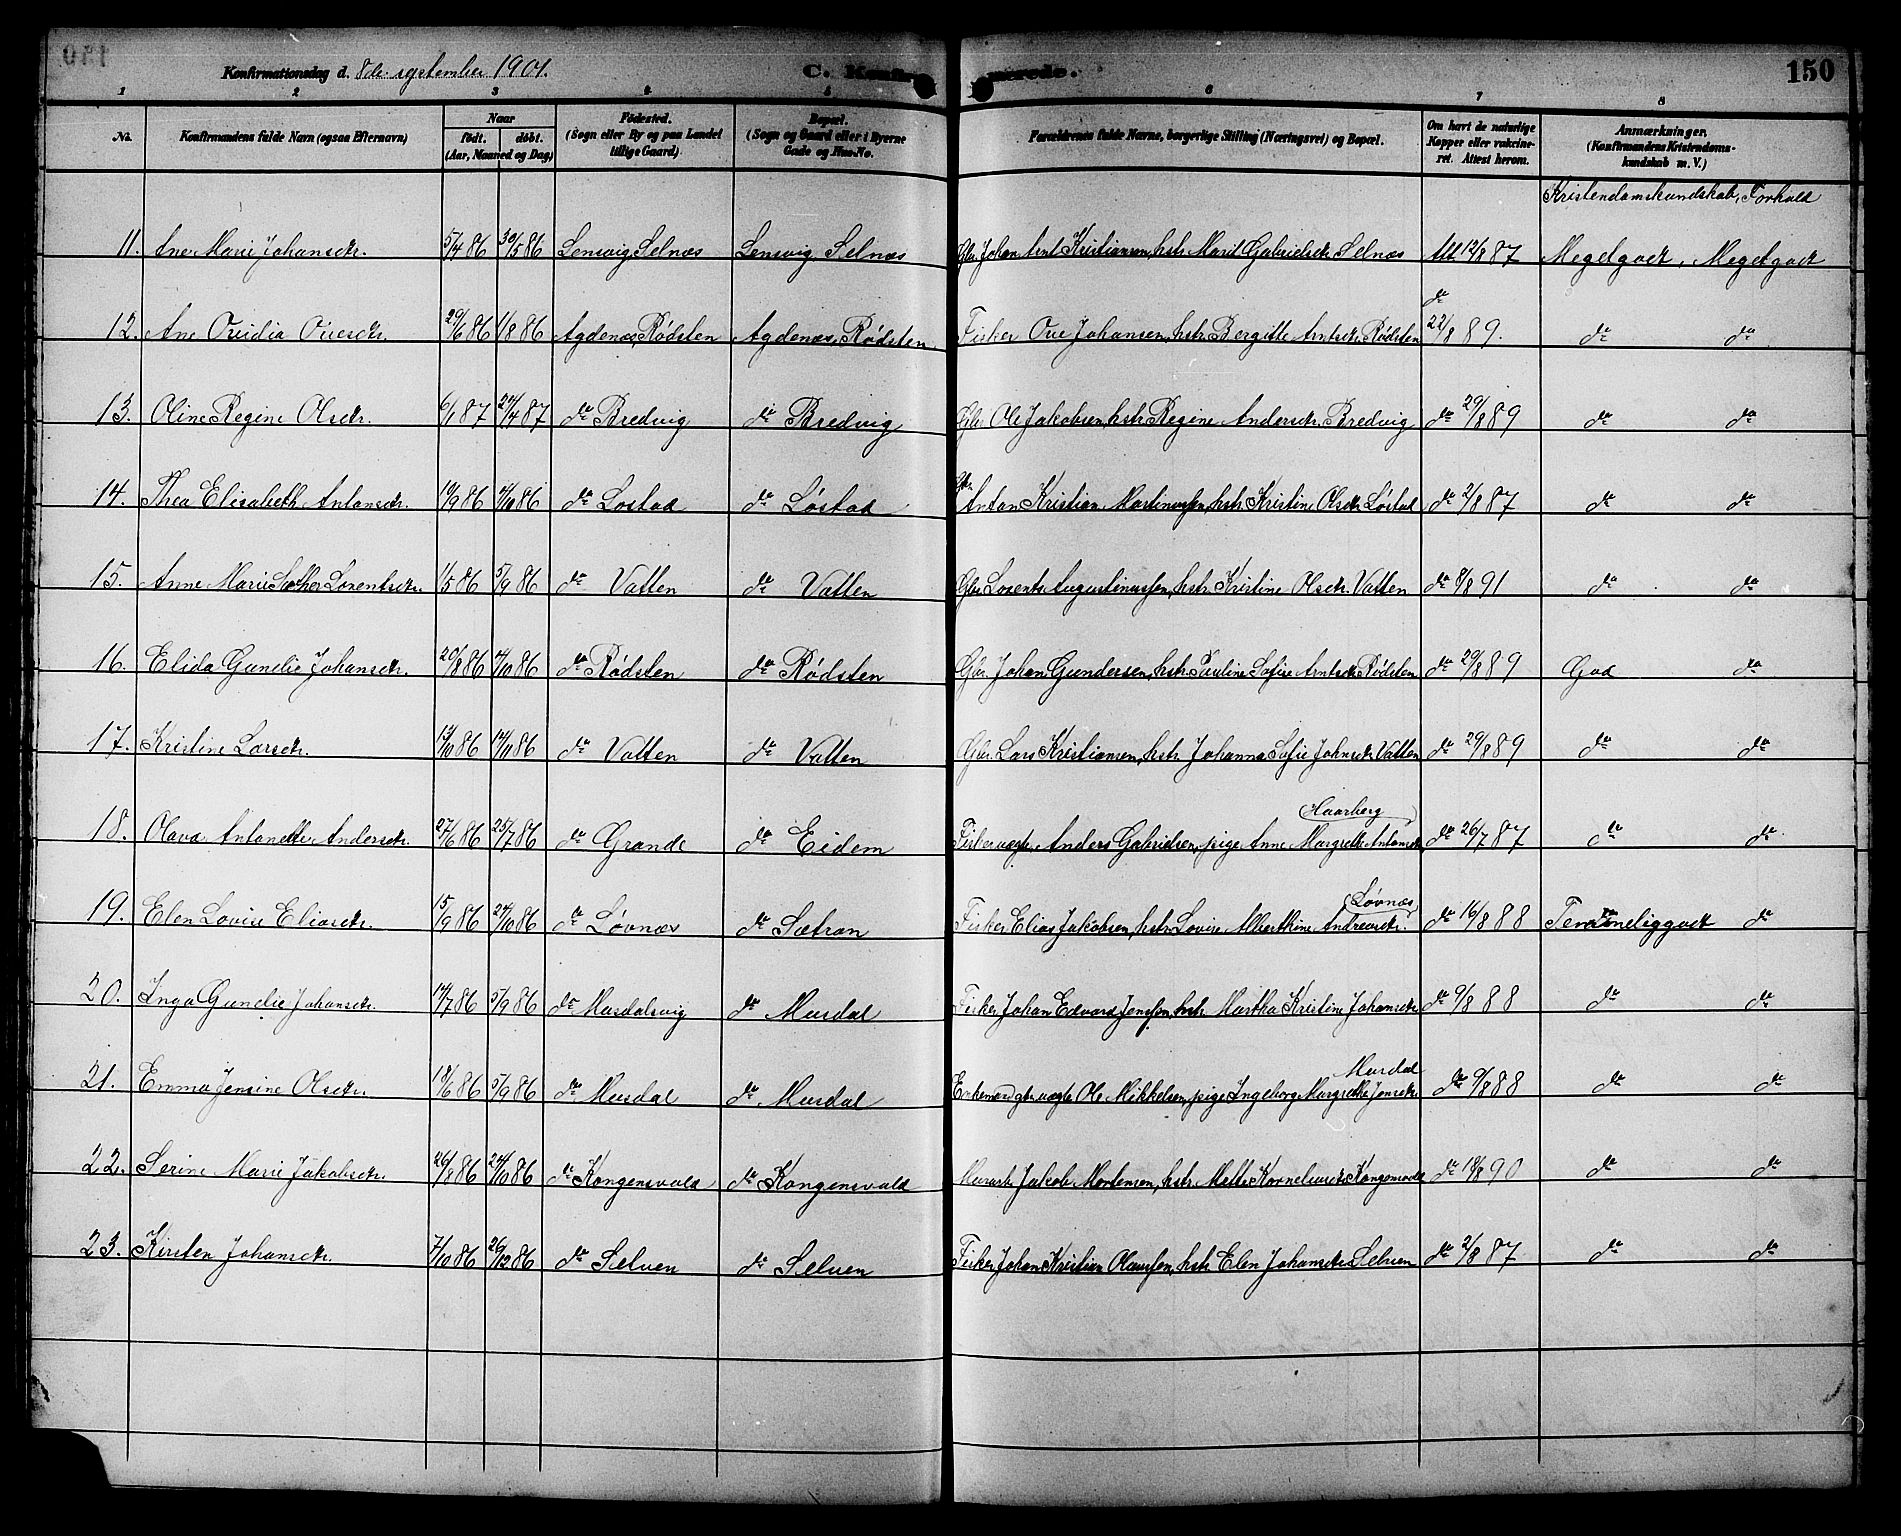 Konfirmationsdag d. 8de september 1901. C. Konfirmerede. 150
1 2 3 4 5 6 7 8
No. Konfirmandens fulde Navn (ogsaa Efternavn) Naar født. døbt. (Aar, Maaned og Dag) Fødested. (Sogn eller By og paa Landet tillige Gaard). Bopæl. (Sogn og Gaard eller i Byerne Gade og Hus-No. Forældrenes fulde Navne, borgerlige Stilling (Næringsvei) og Bopæl. Om havt de naturlige Kopper eller vakcineret. Attest herom. Anmærkninger. (Konfirmandens Kristendomskundskab m. V.)
Kristendomskundskab, Forhold
11. Ane Marie Johansdtr. 5/4 86 30/5 86 Lensvig, Selnæs Lensvig, Selnæs Gbr. Johan Arnt Kristiansen, hstr. Marit Gabrielsdtr. Selnæs Att. 12/8 87 Megetgodt, Megetgodt
12. Ane Ovidia Ovesdtr. 29/6 86 1/8 86 Agdenæs, Rødsten Agdenæs, Rødsten Fisker Ove Johansen, hstr. Bergitte Arntsdtr. Rødsten do 22/8 89. do do
13. Oline Regine Olsdtr. 6/1 87 24/4 87 do Bredvig do Bredvig Gbr. Ole Jakobsen, hstr. Regine Andersdtr. Bredvig do 29/8 89 do do
14. Thea Elisabeth Antonsdtr. 10/9 86 4/10 86 do Løstad do Løstad Gbr. Anton Kristian Martinussen, hstr. Kristine Olsdtr. Løstad do 2/8 87 do do
15. Anne Marie Lorentsdtr. 1/5 86 5/9 86 do Vatten do Vatten Gbr. Lorents Augustinussen, hstr. Kristine Olsdtr. Vatten do 8/8 91 do do
16. Elida Gunelie Johansdtr. 20/8 86 4/10 86 do Rødsten do Rødsten Gbr. Johan Gundersen, hstr. Pauline Sofie Arntsdtr. Rødsten do 29/8 89 God do
17. Kristine Larsdtr. 12/10 86 14/11 86 do Vatten do Vatten Gbr. Lars Kristiansen, hstr. Johanna Sofie Johnsdtr. Vatten do 29/8 89 do do
18. Olava Antonette Andersdtr. 27/6 86 25/7 86 do Grande do Eidem Fisker ugte. Anders Gabrielsen, pige Anne Margrethe Antonsdtr. Haarberg do 26/7 87 do do
19. Elen Lovise Eliasdtr. 15/9 86 24/10 86 do Løvnæs do Sætran Fisker Elias Jakobsen, hstr. Lovise Albertine Andreasdtr. Løvnæs do 16/8 88 Temmeliggodt do
20. Inga Gunelie Johansdtr. 14/7 86 5/9 86 do Musdalsvig do Musdal Fisker Johan Edvard Jenssen, hstr. Martha Kristine Johansdtr. do 9/8 88 do do
21. Emma Jensine Olsdtr. 18/6 86 5/9 86 do Mursdal do Musdal Enkemand gbr. ugte Ole Mikkelsen, pige Ingeborg Margrethe Jonsdtr. Musdal do 9/8 88 do do
22. Serine Marie Jakobsdtr. 26/8 86 24/10 86 do Kongensvold do Kongensvold Jakob Mortensen, hstr. Mette Korneliusdtr. Kongensvold do 18/8 90 do do
23. Kirsten Johansdtr. 7/10 86 26/12 86 do Selven do Selven Fisker Johan Kristian Olaussen, hstr. Elen Johansdtr. Selven do 2/8 87 do do